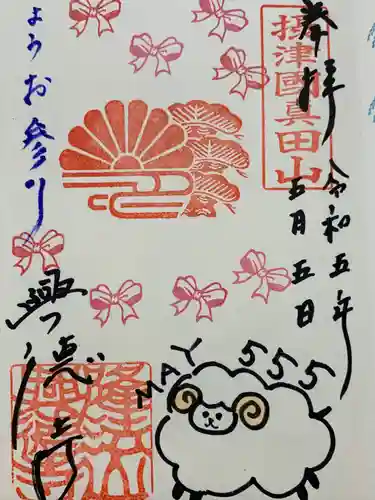 奉拝
摂津國真田山
令和五年
五月五日
ようお参り
興德寺
MAY 555